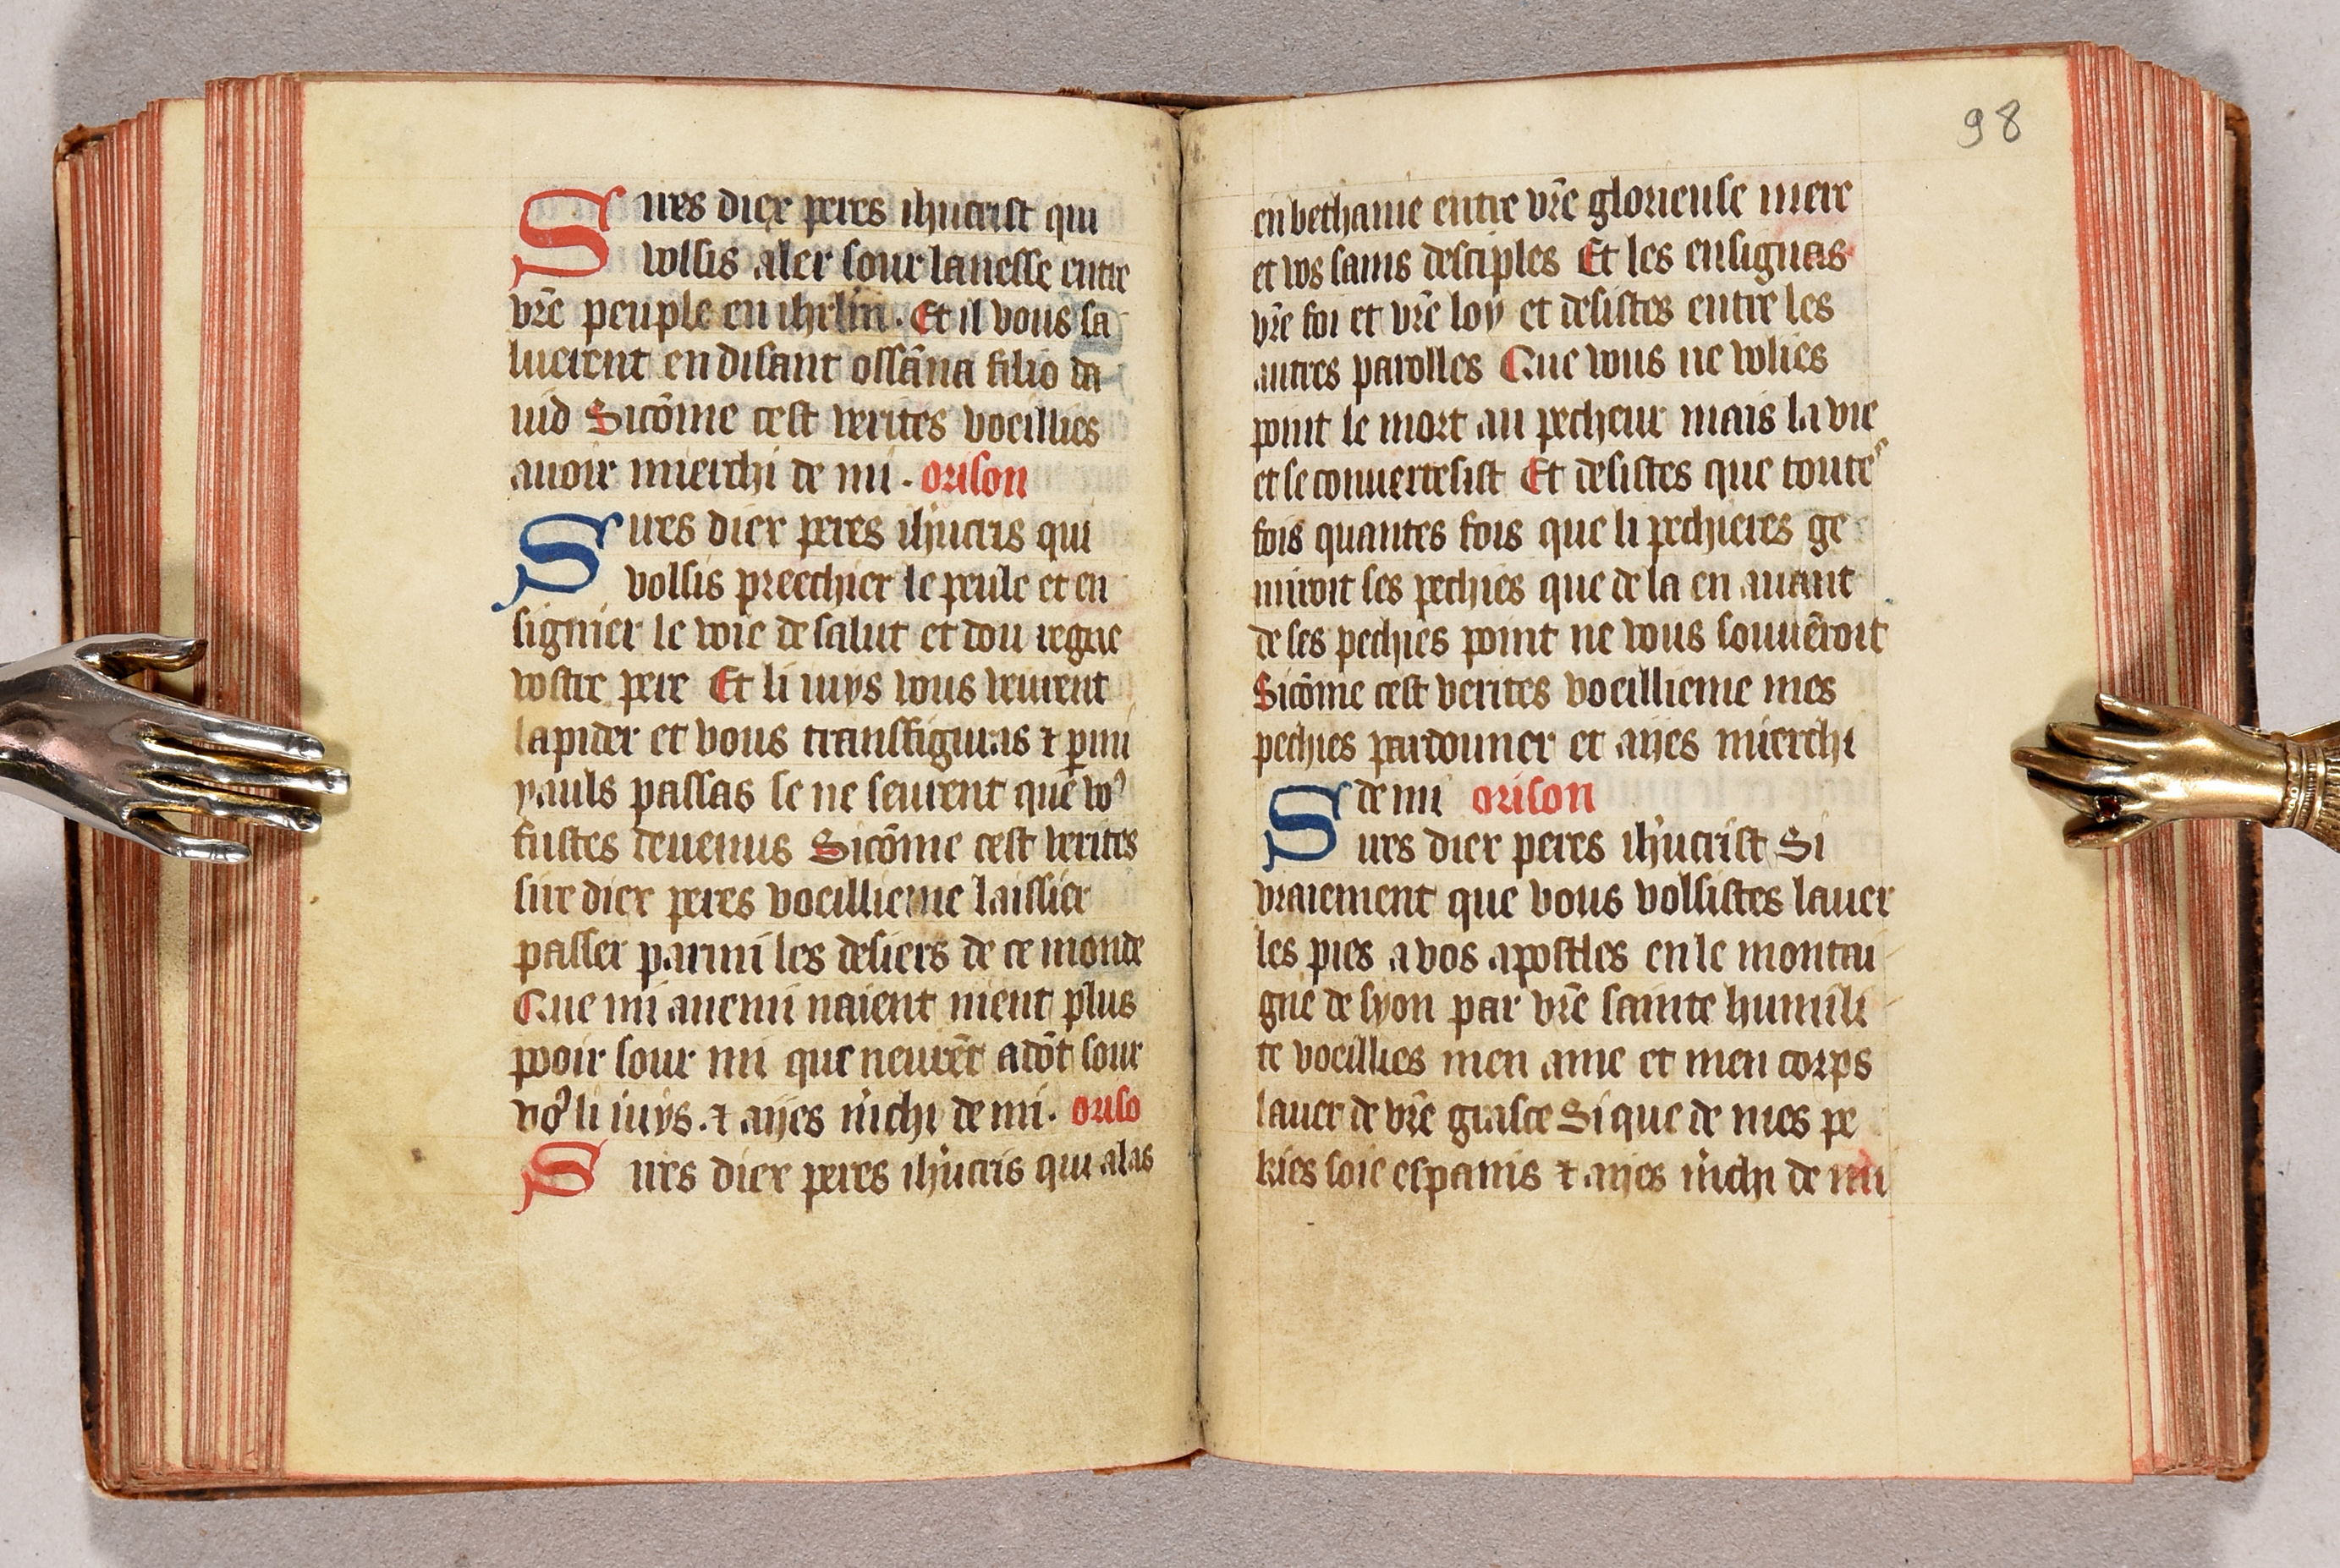 Sires diex peres ihucrist qui
volsis aler sour lanesse entre
vr̃e peuple en ihrl̃m. Et il vous sa
luerent en disant ossãna filio da
uid Sicõme cest verites voeillies
auoir mierchi de mi. orison
Sires diex peres ihucris qui
volsis preechier le peule et en
signier le voie de salut et dou regne
vostre pere Et li iuys vous veurent
lapider et vous transfiguras ⁊ ꝑmi
yauls passas se ne seurent que voꝰ
fustes deuenus Sicõme cest verites
sire diex peres voeillieme laissier
passer parmi les desiers de ce monde
Que mi anemi naient nient plus
pooir sour mi que neurẽt adõt sour
voꝰ li iuys. ⁊ aijes m̃chi de mi. oriso
Sires diex peres ihucris qui alas
98
en bethanie entre vr̃e glorieuse mere
et vos sains desciples Et les ensignas
vr̃e foi et vr̃e loy et desistes entre les
autres parolles Que vous ne volies
point le mort au pecheur mais la vie
et se conuertesist Et desistes que toutes
fois quantes fois que li pechieres ge
miroit ses pechies que de la en auant
de ses pechies point ne vous souuẽroit
Sicõme cest verites voeillieme mes
pechies pardonner et aijes mierchi
de mi orison
Sires diex peres ihucrist Si
vraiement que vous volsistes lauer
les pies a vos apostles en le montai
gne de syon par vr̃e sainte humili
te voeillies men ame et men corps
lauer de vr̃e grasce Si que de mes pe
kies soie espanis ⁊ aijes m̃chi de mi